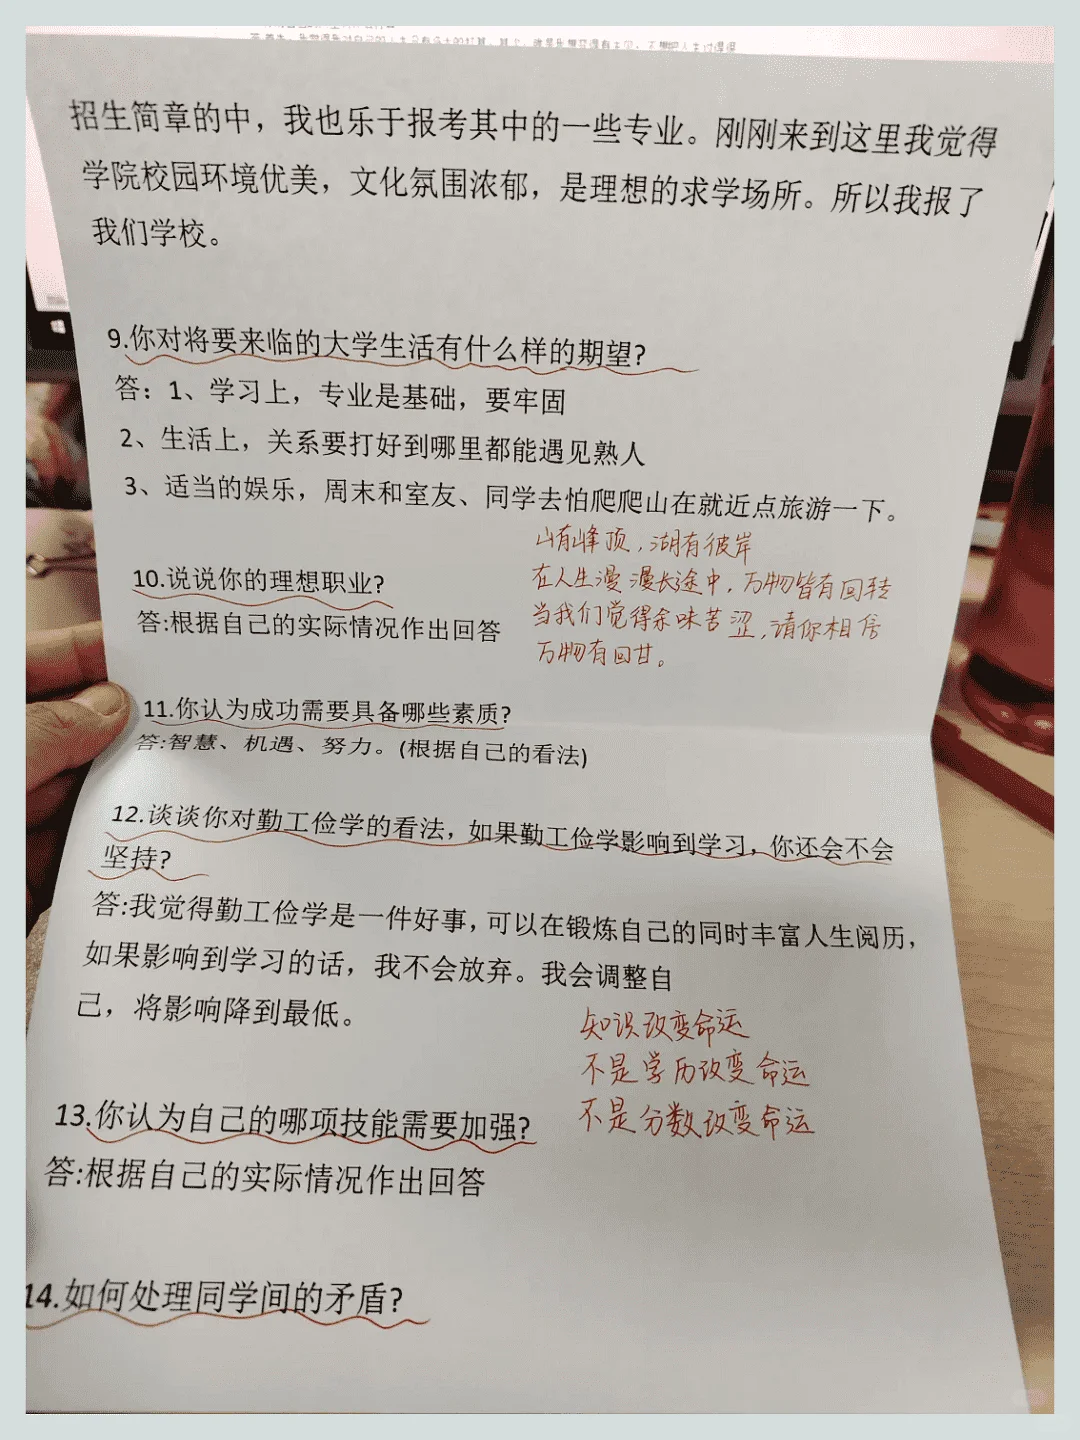 招生简章的中，我也乐于报考其中的一些专业。刚刚来到这里我觉得
学院校园环境优美，文化氛围浓郁，是理想的求学场所。所以我报了
我们学校。
9.你对将要来临的大学生活有什么样的期望?
答：1、学习上，专业是基础，要牢固
2、生活上，关系要打好到哪里都能遇见熟人
3、适当的娱乐，周末和室友、同学去怕爬爬山在就近点旅游一下。
山有峰顶，湖有彼岸
在人生漫漫长途中，万物皆有回转
当我们觉得余味苦涩，请你相信
万物有回甘。
10.说说你的理想职业?
答:根据自己的实际情况作出回答
11.你认为成功需要具备哪些素质?
答:智慧、机遇、努力。(根据自己的看法)
12.谈谈你对勤工俭学的看法，如果勤工俭学影响到学习，你还会不会
坚持?
答:我觉得勤工俭学是一件好事，可以在锻炼自己的同时丰富人生阅历，
如果影响到学习的话，我不会放弃。我会调整自
己，将影响降到最低。
知识改变命运
不是学历改变命运
不是分数改变命运
13.你认为自己的哪项技能需要加强?
答:根据自己的实际情况作出回答
14.如何处理同学间的矛盾?